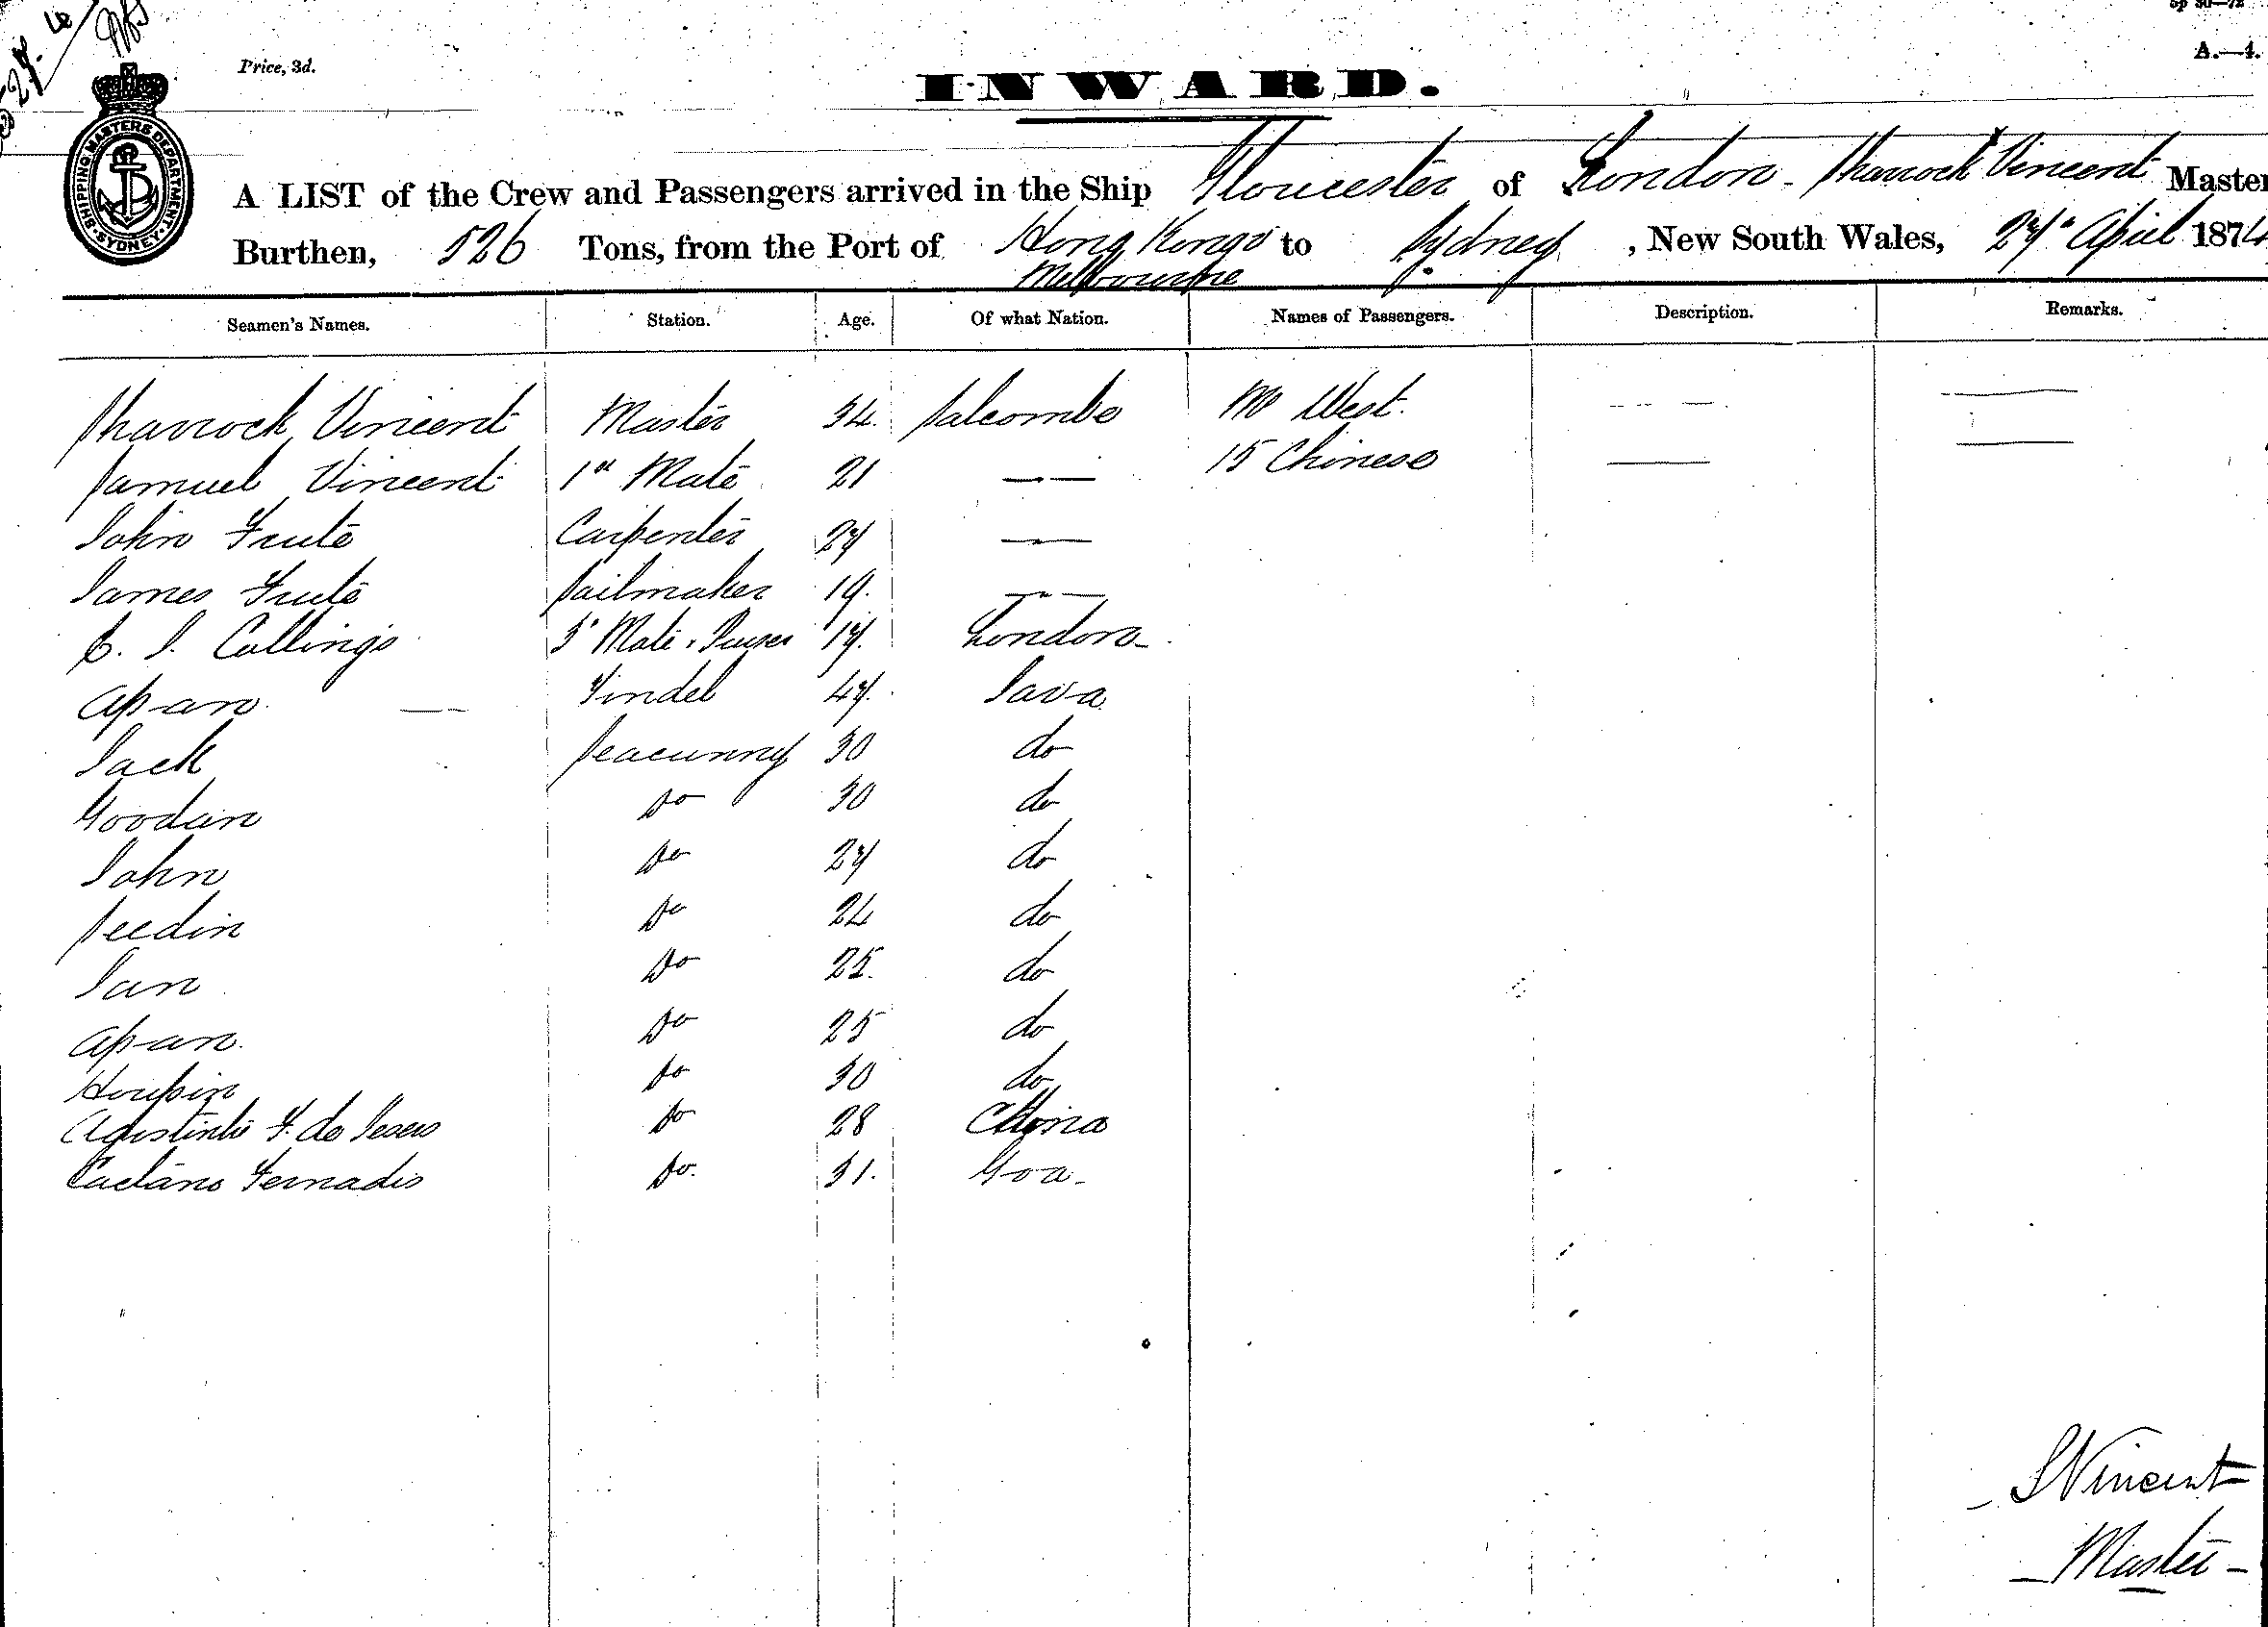 Price, 3d.
A.—4.
INWARD.
SHIPPING MASTERS DEPARTMENT SYDNEY
A LIST of the Crew and Passengers arrived in the Ship Gloucester of London - Sharrock Vincent Master
Burthen, 526 Tons, from the Port of Hong Kong to Sydney, New South Wales, 27th April 1874
Melbourne
Seamen's Names. Station. Age. Of what Nation. Names of Passengers. Description. Remarks.
Sharrock Vincent Master 34. Salcombe Mr West.
Samuel Vincent 1st Mate 21 —— 15 Chinese
John Trute Carpenter 27 ——
James Trute Sailmaker 19. ——
C. J. Collings 3rd Mate & Purser 17. London
Apan Tindel 47. Java
Jack Seacunny 30 do
Goodan Do 30 do
John Do 27 do
Seedin Do 24 do
Jan Do 25. do
Apan. Do 25 do
Do 30 do
F. de Do 28 China
Caetano Fernadis Do. 31. Goa
S Vincent
Master